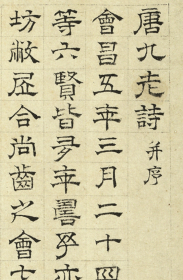 唐九老詩 并序
會昌五年三月二十四
等六賢皆多年壽予亦
坊敝居合尚齒之會七